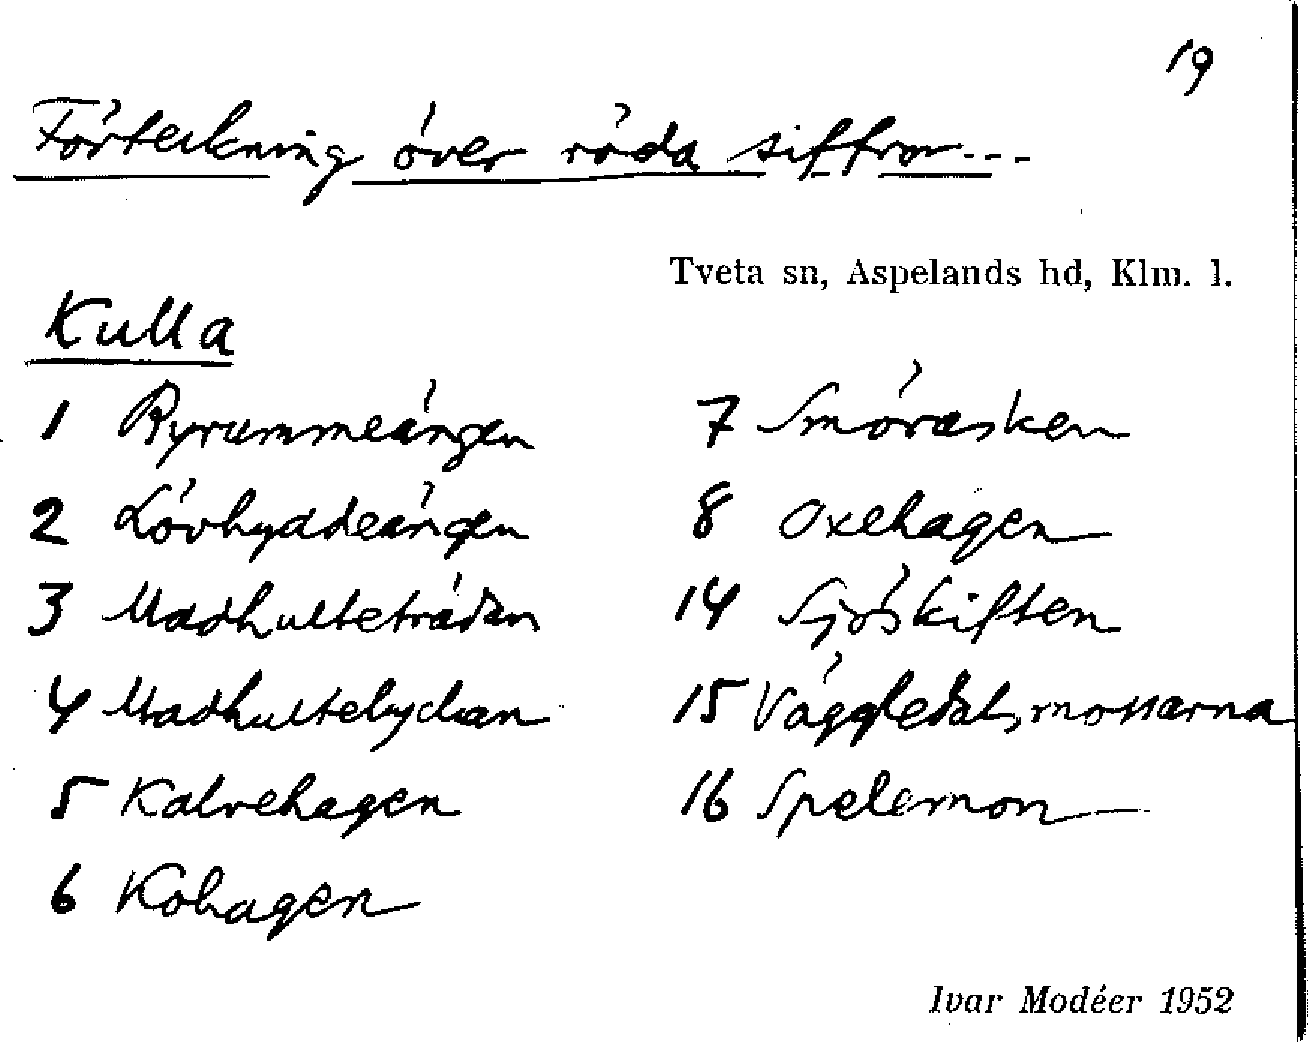 19
Förteckning över röda siffror...
Tveta sn, Aspelands hd, Klm. l.
Kulla
1 Ryrummeängen
2 Lövhyddeängen
3 Madhulteträdan
4 Madhultelyckan
5 Kalvehagen
6 Kohagen
7 Smörasken
8 Oxehagen
14 Sjöskiften
15 Väggledalsmossarna
16 Spelemon
Ivar Modéer 1952